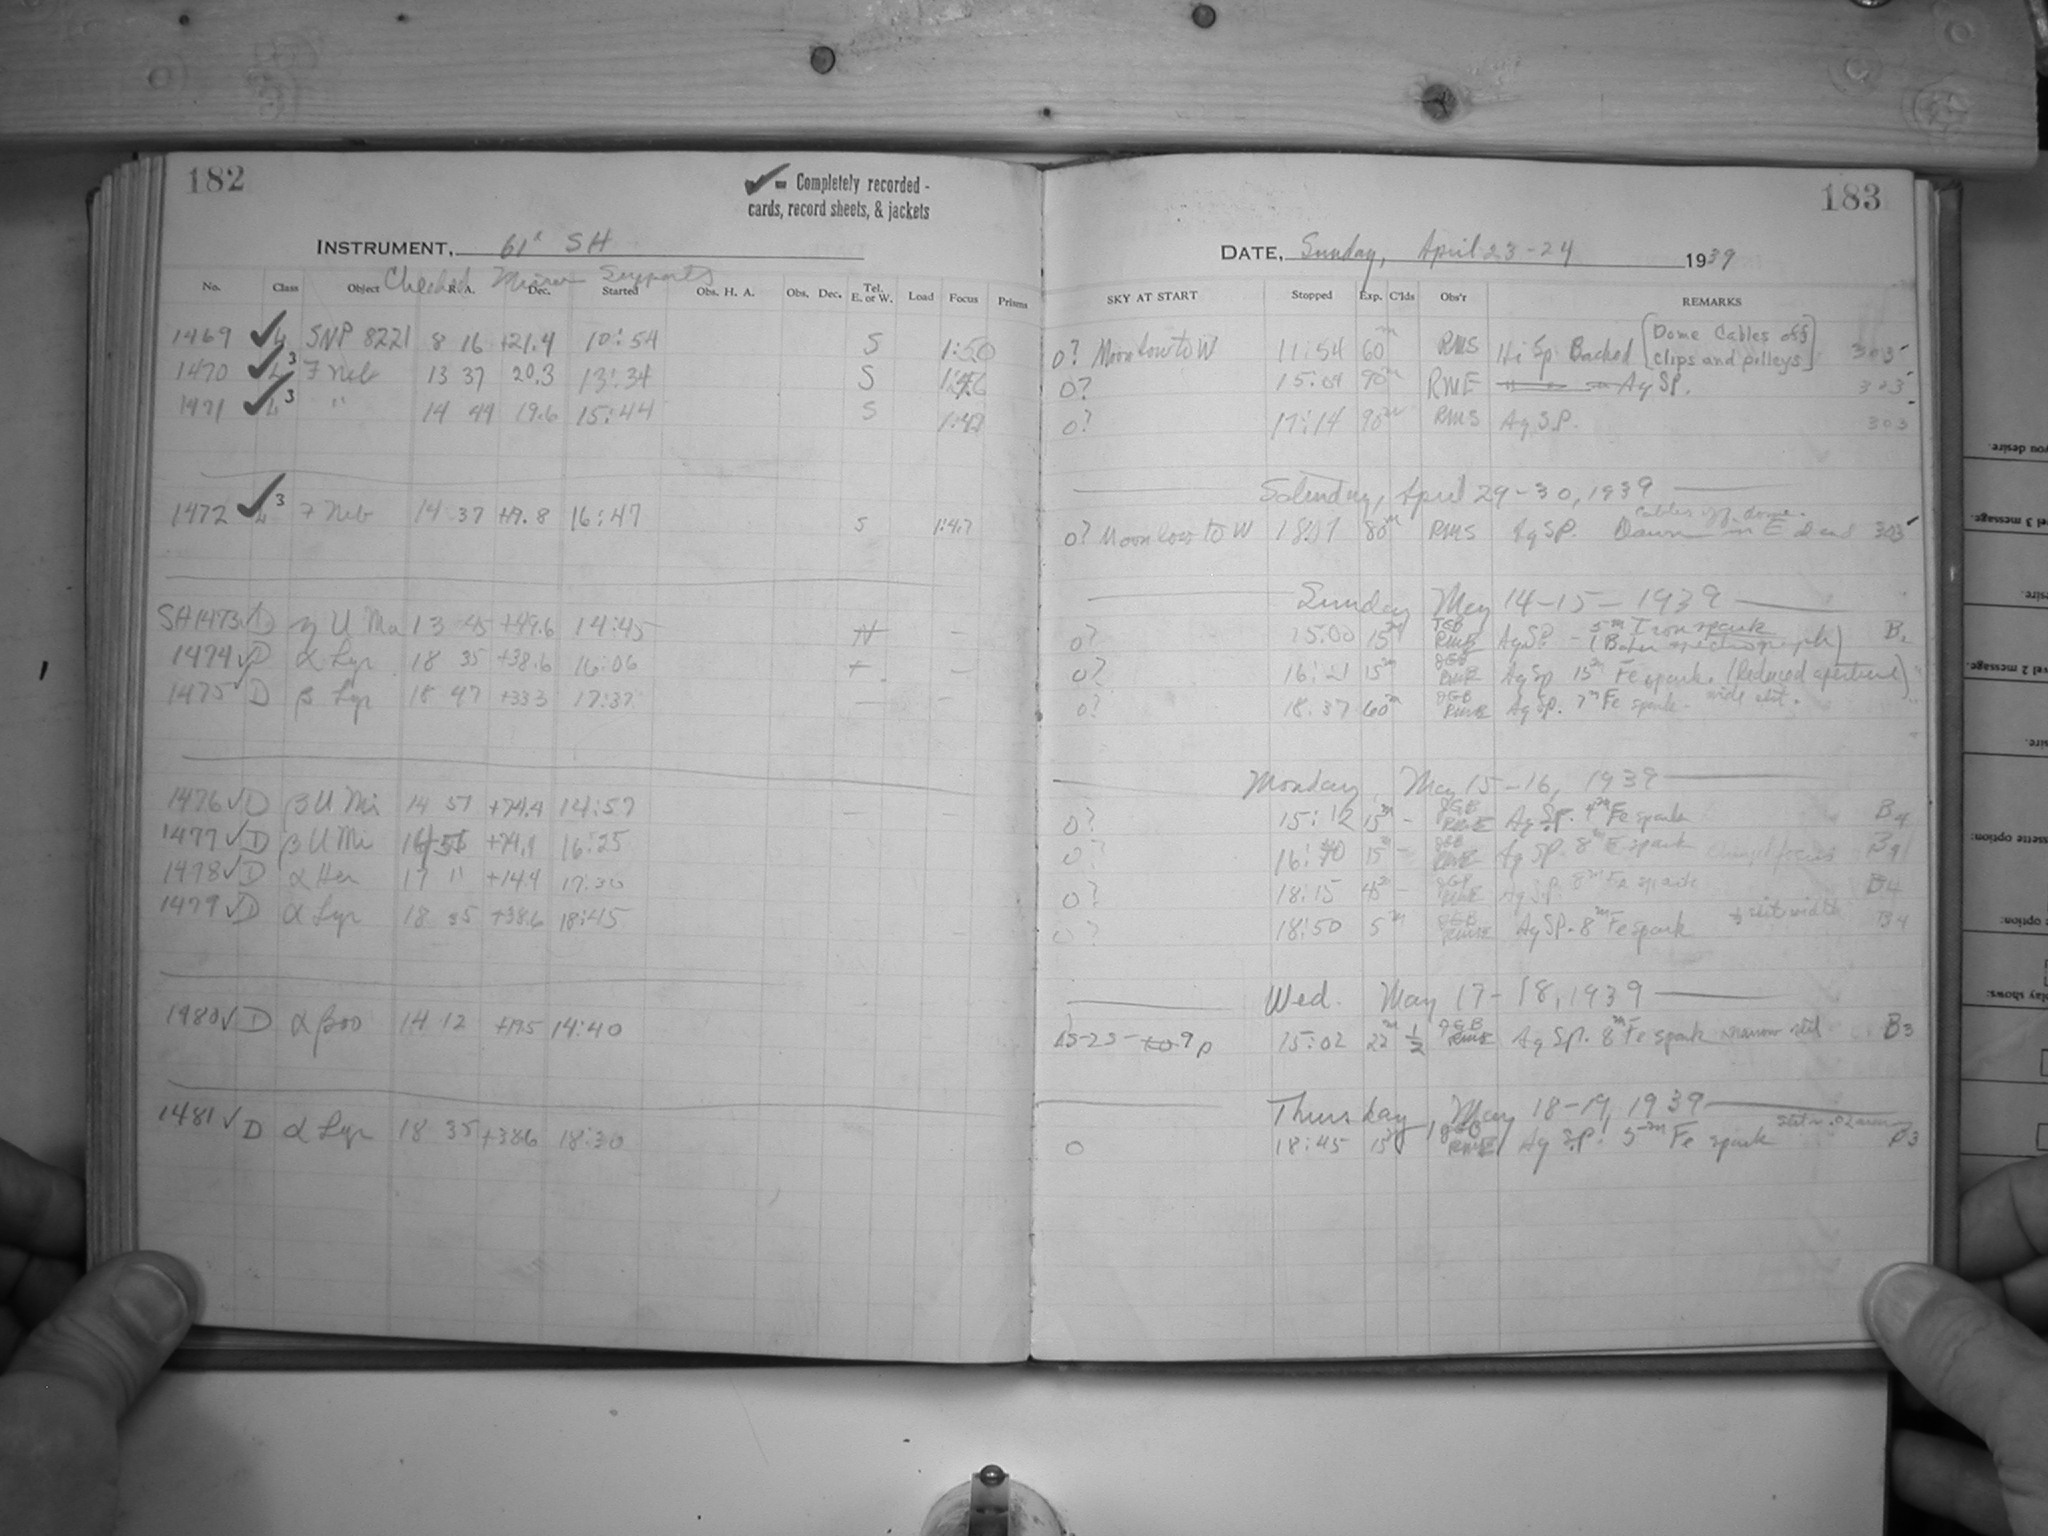 182
✓ = Completely recorded -
cards, record sheets, & jackets
INSTRUMENT, 61" SH
Checked Mirror Supports
No. Class Object R. A. Dec. Started Obs. H. A. Obs. Dec. Tel. E. or W. Load Focus Prisms
1469 ✓ L SNP 8221 8 16 +21.4 10:54 S 1:50
1470 ✓ L 3 7 Neb 13 37 20.3 13:34 S
1471 ✓ L 3 " 14 44 19.6 15:44 S 1:47
1472 ✓ L 3 7 Neb 14 37 +19.8 16:47 S 1:47
SH1473 ✓ D η U Ma 13 45 +49.6 14:45 –
1474 ✓ D α Lyr 18 35 +38.6 16:06 –
1475 D β Lyr 18 47 +333 17:37 – –
1476 ✓ D β U Mi 14 51 +74.4 14:57 – –
1477 ✓ D β U Mi +74.4 16:25
1478 ✓ D α Her 17 11 +14.4 17:30
1479 ✓ D α Lyr 18 35 +38.6 18:45 –
1480 ✓ D α Boo 14 12 +195 14:40
1481 ✓ D α Lyr 18 35 +386 18:30
183
DATE, Sunday, April 23-24 1939
SKY AT START Stopped Exp. C'lds Obs'r REMARKS
0? Moon low to W 11:54 60m RMS Hi Sp Backed [Dome Cables off clips and pulleys] 303
0? 15:04 90m RME Ag SP. 303
0? 17:14 90m RMS Ag SP. 303
Saturday, April 29-30, 1939
Cables off dome.
0? Moon low to W 1807 80m RMS Ag SP. Dawn in E 303
Sunday May 14-15-1939
5m Iron spark
0? 15:00 15m Ag SP - (Baker spectrograph)
0? 16:21 15m JGB RME Ag Sp 15m Fe spark. (Reduced aperture) "
0? 18:37 60m JGB RME Ag SP. 7m Fe spark. wide slit. "
Monday, May 15-16, 1939
0? 15:12 15m – JGB RME Ag SP. 4m Fe spark B4
0? 16:40 15m – JGB RME Ag SP. 8m Fe spark Changed focus B4
0? 18:15 45m – JGB RME Ag SP. 8m Fe spark B4
0? 18:50 5m JGB RME Ag SP. 8m Fe spark ½ slit width B4
Wed. May 17-18, 1939
15:02 22m ½ JGB RME Ag SP. 8m Fe spark narrow slit B3
Thursday, May 18-19, 1939
0 18:45 15m JGB RME Ag SP. 5m Fe spark B3
you desire.
el 3 message.
sire.
vel 2 message.
ire.
ssette option:
option:
play shows: